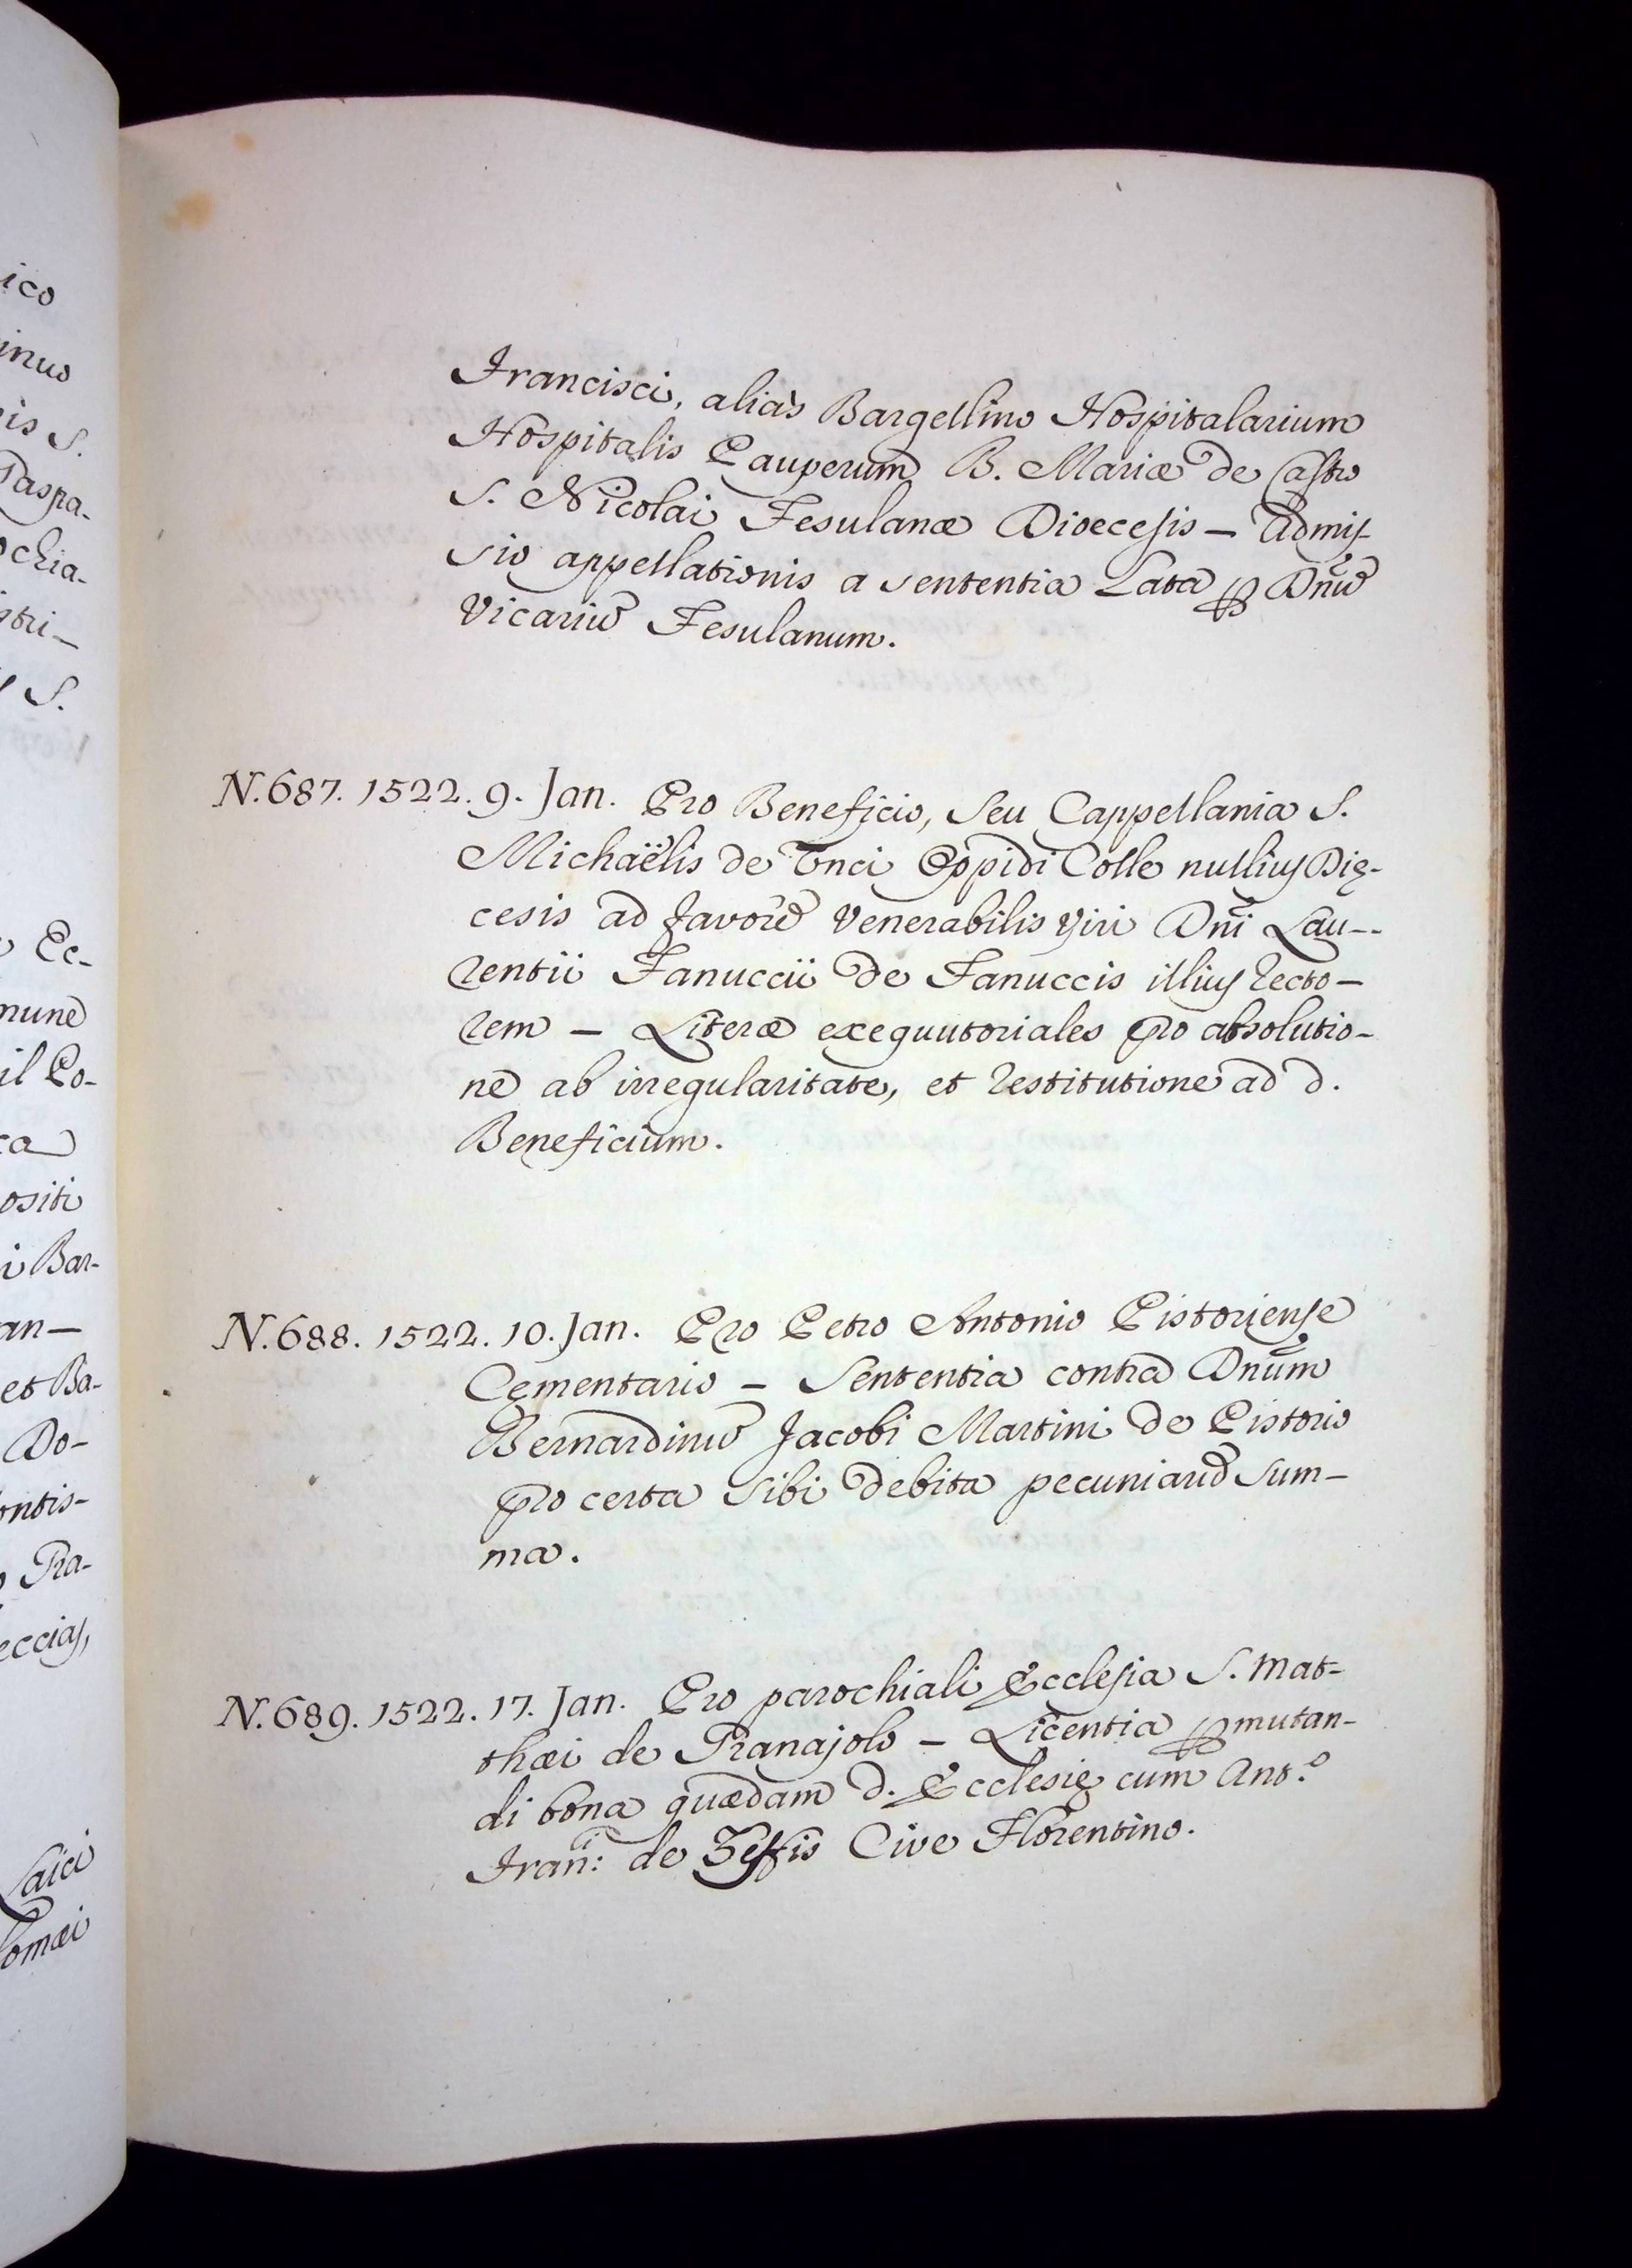 Francisci, alias Bargellino Hospitalarium
Hospitalis Pauperum B. Mariæ de Castro
S. Nicolai Fesulanæ Dioecesis — Admis-
sio appellationis a sententia Lata ꝑ Dnū
Vicariū Fesulanum.
N. 687. 1522. 9. Jan. Pro Beneficio, seu Cappellania S.
Michaëlis de Onci Oppidi Colle nullius Dię-
cesis ad favorē Venerabilis Viri Dñi Lau--
rentii Fanuccii de Fanuccis illius recto-
rem — Literæ exequutoriales pro absolutio-
ne ab irregularitate, et restitutione ad d.
Beneficium.
N. 688. 1522. 10. Jan. Pro Petro Antonio Pistoriense
Cementario — Sententia contra Dñum
Bernardinū Jacobi Martini de Pistorio
pro certa sibi debita pecuniarū sum-
ma.
N. 689. 1522. 17. Jan. Pro parochiali Ecclesia S. Mat-
thæi de Granajolo — Licentia ꝑmutan-
di bona quædam d. Ecclesię cum Ant.º
Iran̄: de Cive Florentino.
ico
inus
is S.
Paspa-
ochia-
stri-
S.
Ec-
mune
il Po-
ca
ositi
i Bar-
an-
et Ba-
Do-
ontis-
Pra-
eccias,
Laici
omæi